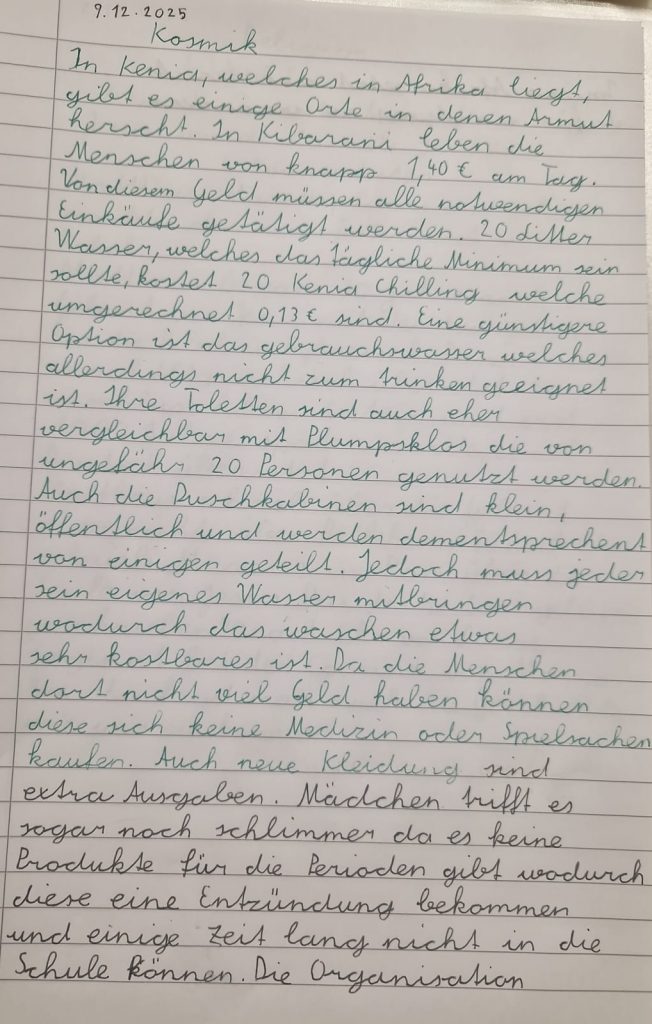 9.12.2025
Kosmik
In Kenia, welches in Afrika liegt,
gibt es einige Orte in denen Armut
herscht. In Kibarani leben die
Menschen von knapp 1,40 € am Tag.
Von diesem Geld müssen alle notwendigen
Einkäufe getätigt werden. 20 Litter
Wasser, welches das tägliche Minimum sein
sollte, kostet 20 Kenia Chilling welche
umgerechnet 0,13 € sind. Eine günstigere
Option ist das gebrauchswasser welches
allerdings nicht zum trinken geeignet
ist. Ihre Toletten sind auch eher
vergleichbar mit Plumpsklos die von
ungefähr 20 Personen genutzt werden.
Auch die Duschkabinen sind klein,
öffentlich und werden dementsprechent
von einigen geteilt. Jedoch muss jeder
sein eigenes Wasser mitbringen
wodurch das waschen etwas
sehr kostbares ist. Da die Menschen
dort nicht viel Geld haben können
diese sich keine Medizin oder Spielsachen
kaufen. Auch neue Kleidung sind
extra Ausgaben. Mädchen trifft es
sogar noch schlimmer da es keine
Produkte für die Perioden gibt wodurch
diese eine Entzündung bekommen
und einige Zeit lang nicht in die
Schule können. Die Organisation